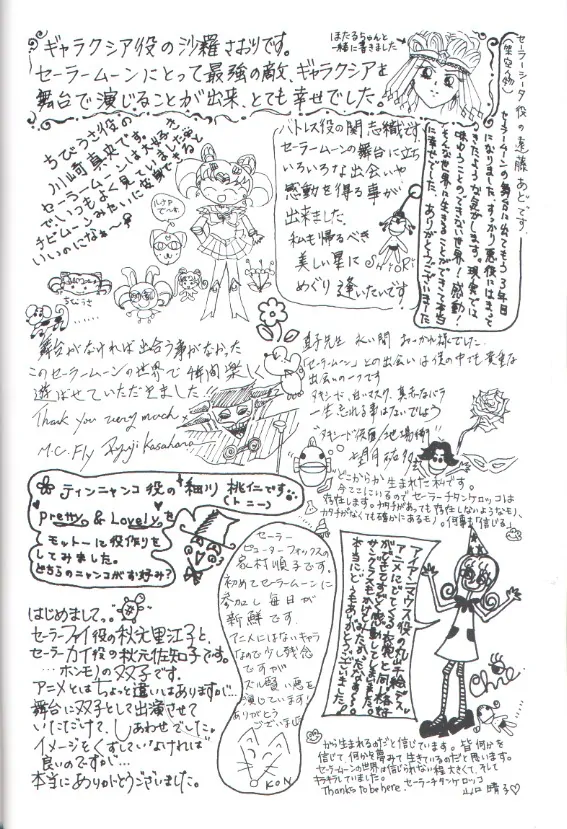 ギャラクシア役の沙羅さおりです。
セーラームーンにとって最強の敵、ギャラクシアを
舞台で演じることが出来、とても幸せでした。
ほたるちゃんと
一緒に書きました
セーラーシータ役の遠藤あどです
セーラームーンの舞台に出てもう3年目
になりました。すっかり悪役にはまって
きたような気がします。現実では
味わうことのできない世界!感動!
そんな世界に生きることができて本当
に幸せでした。ありがとうございました
ちびうさ役の
川崎真央です。
セーラームーンは大好き
で、いつもよく見ていました
チビムーンみたいに変身できると
いいのになぁ〜
ちびうさ
パトレス役の関志織です。
セーラームーンの舞台に立ち
いろいろな出会いや
感動を得る事が
出来ました。
私も帰るべき
美しい星に
めぐり逢いたいです
SHIORI
舞台がなければ出会う事がなかった
このセーラームーンの世界で 1年間楽しく
遊ばせていただきました
Thank you very much
M.C. Fly Ryuji Kasahara
直子先生 永い間 おつかれ様でした
「セーラームーン」との出会いは僕の中でも貴重な
出会いの一つです
タキシード、白いマスク、真赤なバラ
一生忘れる事はないでしょう
"タキシード仮面/地場衛"
望月祐多
ティンニャンコ役の細川 桃仁です
(トニー)
pretty & Lovely を
モットーに役作りを
してみました。
どちらのニャンコがお好み?
どこからか生まれた私です。
今ここにいるので セーラーチタンケロッコは
存在します。カタチがあっても存在しないようなモノ、
カタチがなくても確かにあるモノ。何事も「信じる」
セーラー
ピューターフォックスの
家村順子です。
初めてセーラームーンに
参加し毎日が
新鮮です。
アニメにはないキャラ
なので少し残念
ですが
ズル賢い悪を
演じています!
ありがとう
ございます
KON
アイアンマウス役の丸山千絵デス
アニメにでてくる衣装と同格は
本当にどうもありがとうございました。
Chie
はじめまして。
セーラーファイ役の秋元里江子と、
セーラーカイ役の秋元佐知子です。
…ホンモノの双子です。
アニメとはちょっと違いはありますが…
舞台に双子として出演させて
いただけて、しあわせでした。
イメージをくずしていなければ
良いのですが…
本当にありがとうございました。
から生まれるのだと信じています。皆何かを
信じて、何かを夢みて生きているのだと思います。
セーラームーンの世界は信じられない程大きくて、そして
キラキラしていました。 セーラーチタンケロッコ
Thanks to be here. 山口晴子